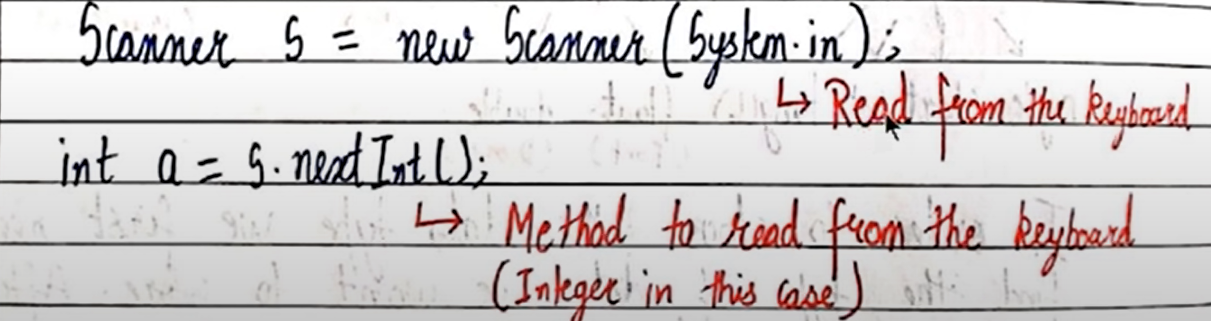 Scanner S = new Scanner (System.in);
↳ Read from the keyboard
int a = S.nextInt();
↳ Method to read from the keyboard
(Integer in this case)